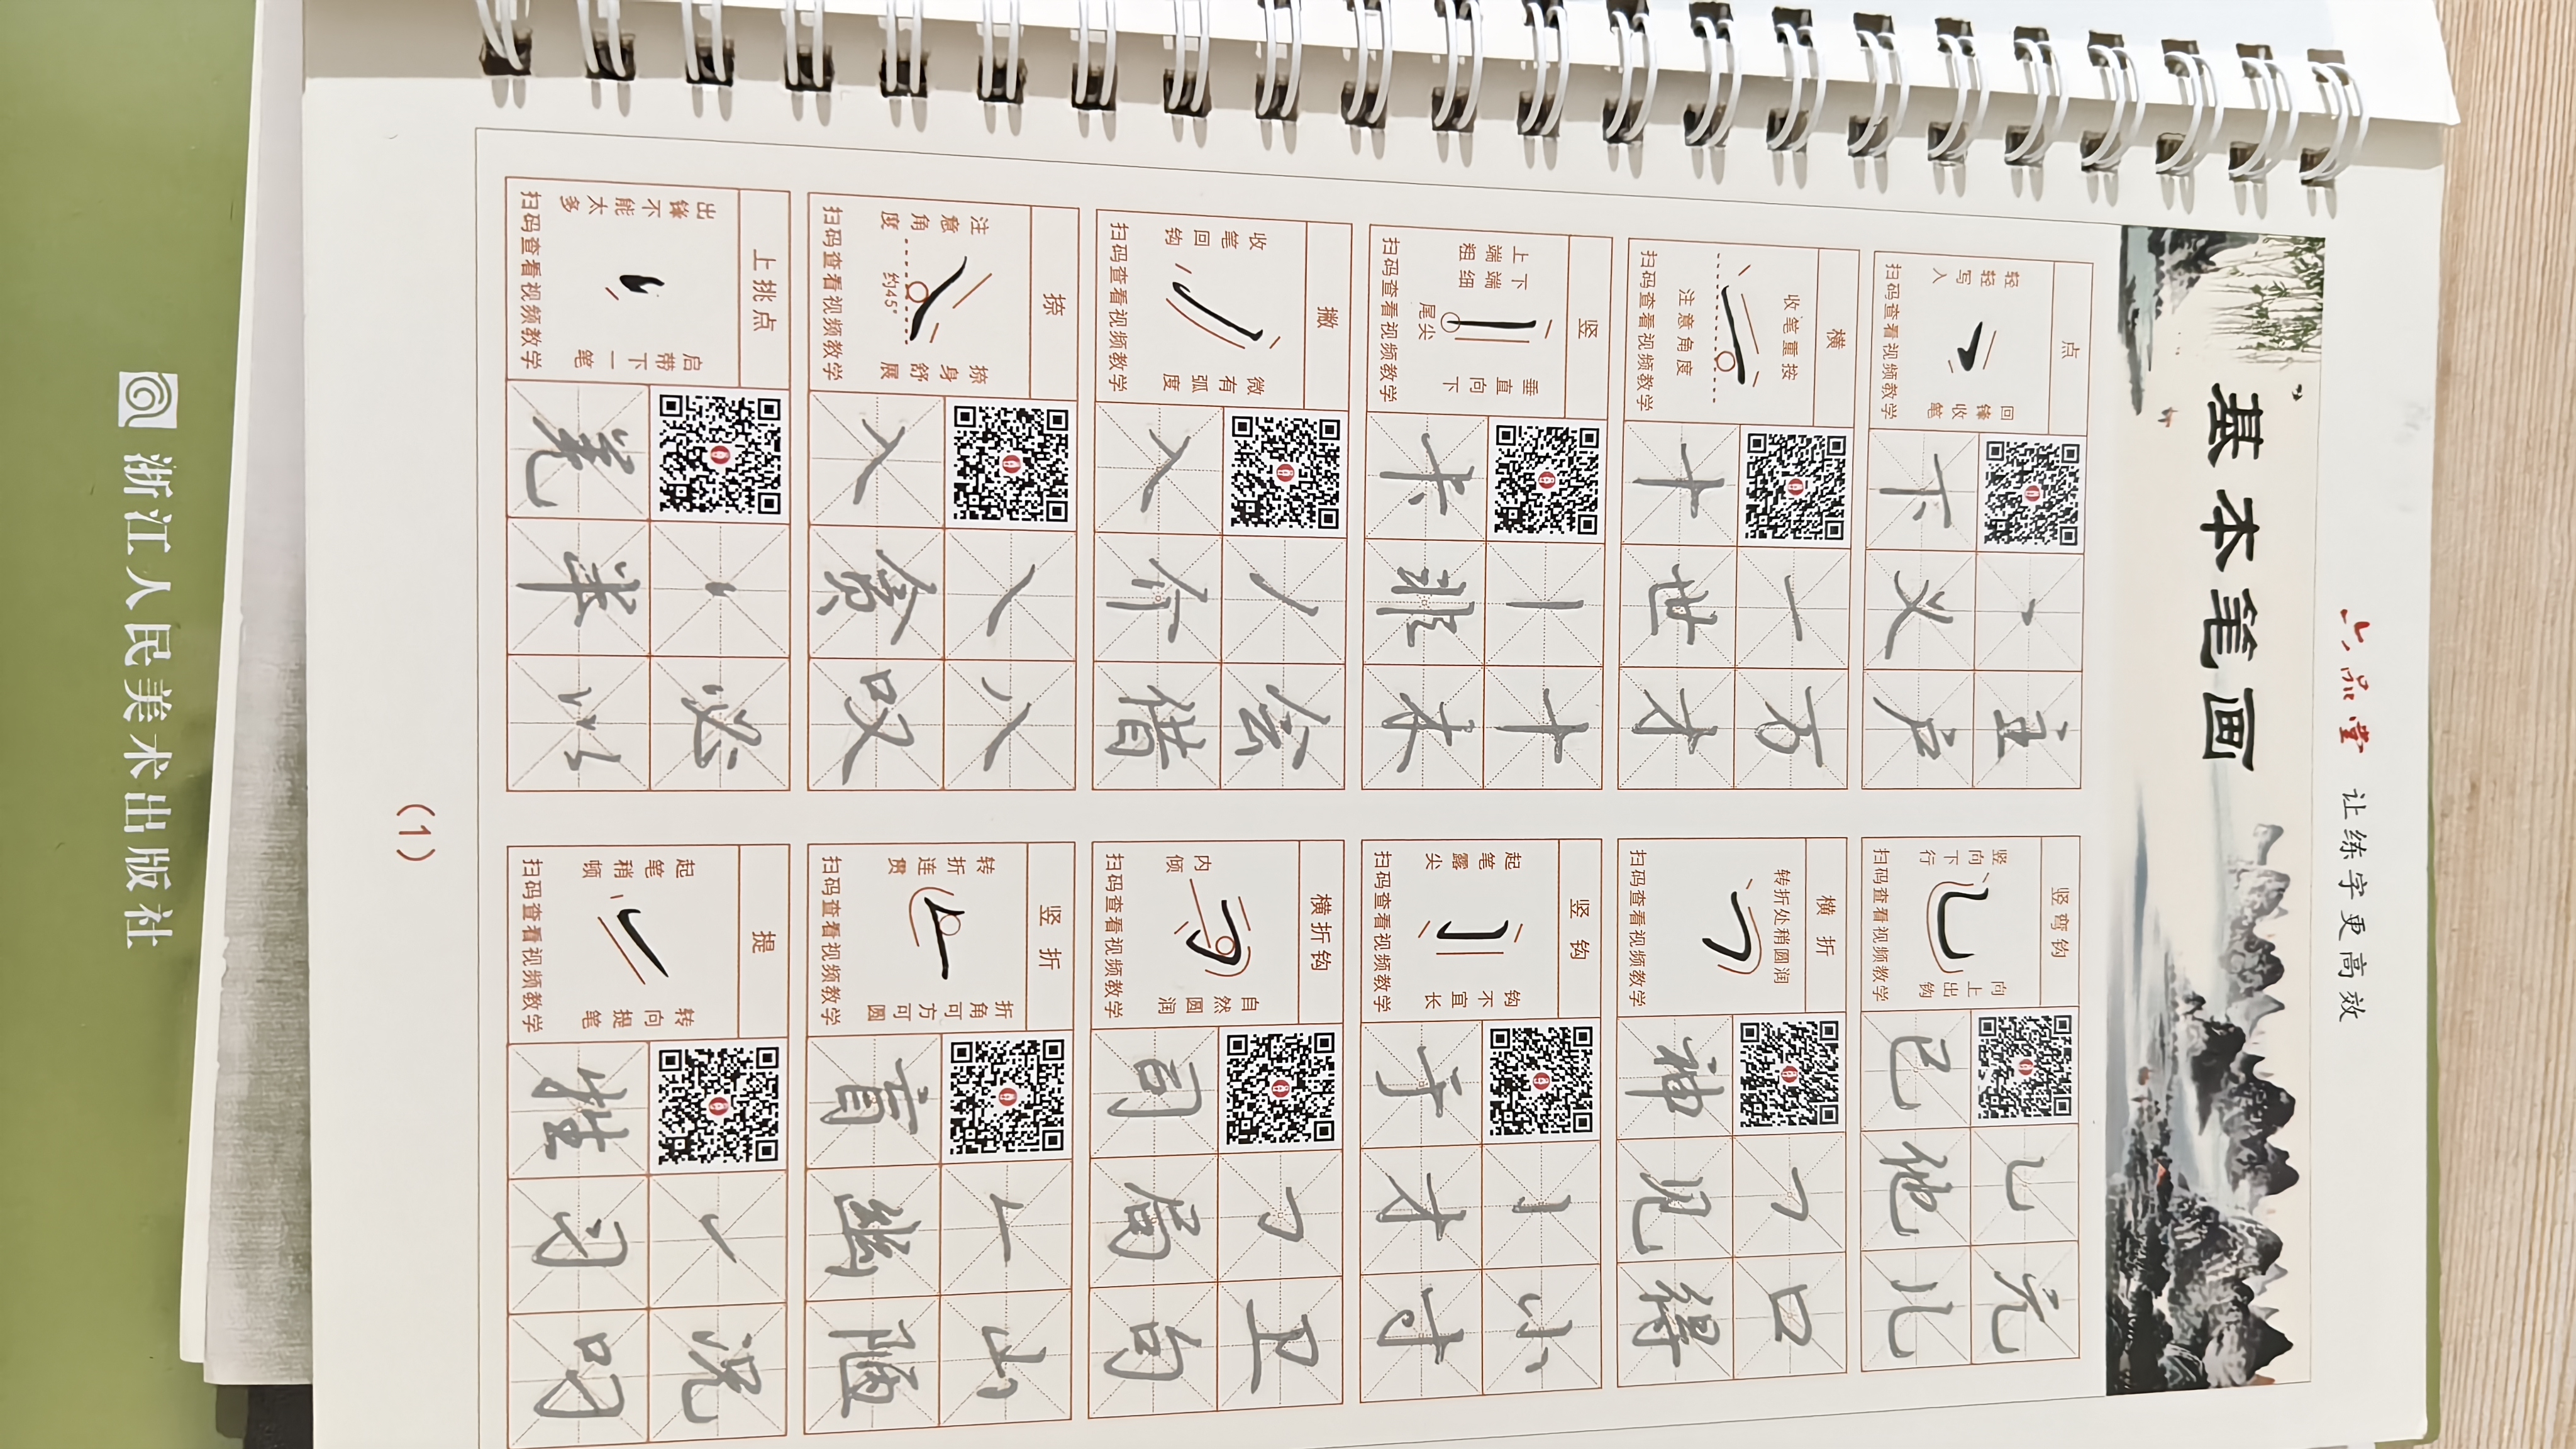 六品堂 让练字更高效
基本笔画
点
轻轻写入
回锋收笔
扫码查看视频教学
丶 主
下 义 户
竖弯钩
竖向下行
向上出钩
扫码查看视频教学
乚 元
己 他 儿
横
收笔重按
注意角度
扫码查看视频教学
一 方
十 世 才
横折
转折处稍圆润
扫码查看视频教学
𠃍 口
神 见 得
竖
上端粗
下端细
垂直向下
尾尖
扫码查看视频教学
丨 十
卡 非 木
竖钩
起笔露尖
钩不宜长
扫码查看视频教学
亅 小
于 才 寸
撇
收笔回钩
微有弧度
扫码查看视频教学
丿 会
入 介 借
横折钩
内倾
自然圆润
扫码查看视频教学
𠃌 卫
司 句
捺
注意角度
约45°
捺身舒展
扫码查看视频教学
㇏ 八
入 叹
竖折
转折连贯
折角可方可圆
扫码查看视频教学
𠃊 山
幽
上挑点
出锋不能太多
启带下一笔
扫码查看视频教学
必
半 以
提
起笔稍顿
转向提笔
扫码查看视频教学
㇀ 况
习 叼
（1）
浙江人民美术出版社